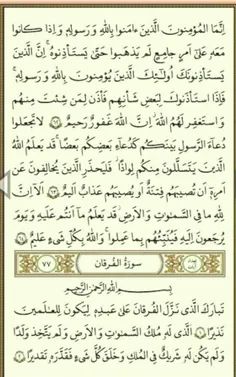 إِنَّمَا الْمُؤْمِنُونَ الَّذِينَ ءَامَنُوا بِاللَّهِ وَرَسُولِهِ وَإِذَا كَانُوا
مَعَهُ عَلَىٰ أَمْرٍ جَامِعٍ لَمْ يَذْهَبُوا حَتَّىٰ يَسْتَأْذِنُوهُ إِنَّ الَّذِينَ
يَسْتَأْذِنُونَكَ أُولَٰئِكَ الَّذِينَ يُؤْمِنُونَ بِاللَّهِ وَرَسُولِهِ
فَإِذَا اسْتَأْذَنُوكَ لِبَعْضِ شَأْنِهِمْ فَأْذَنْ لِمَنْ شِئْتَ مِنْهُمْ
وَاسْتَغْفِرْ لَهُمُ اللَّهَ إِنَّ اللَّهَ غَفُورٌ رَحِيمٌ ٦٢ لَا تَجْعَلُوا
دُعَاءَ الرَّسُولِ بَيْنَكُمْ كَدُعَاءِ بَعْضِكُمْ بَعْضًا قَدْ يَعْلَمُ اللَّهُ
الَّذِينَ يَتَسَلَّلُونَ مِنْكُمْ لِوَاذًا فَلْيَحْذَرِ الَّذِينَ يُخَالِفُونَ عَنْ
أَمْرِهِ أَنْ تُصِيبَهُمْ فِتْنَةٌ أَوْ يُصِيبَهُمْ عَذَابٌ أَلِيمٌ ٦٣ أَلَا إِنَّ
لِلَّهِ مَا فِي السَّمَٰوَاتِ وَالْأَرْضِ قَدْ يَعْلَمُ مَا أَنْتُمْ عَلَيْهِ وَيَوْمَ
يُرْجَعُونَ إِلَيْهِ فَيُنَبِّئُهُمْ بِمَا عَمِلُوا وَاللَّهُ بِكُلِّ شَيْءٍ عَلِيمٌ ٦٤
سُورَةُ الْفُرْقَانِ ٧٧
بِسْمِ اللَّهِ الرَّحْمَٰنِ الرَّحِيمِ
تَبَارَكَ الَّذِي نَزَّلَ الْفُرْقَانَ عَلَىٰ عَبْدِهِ لِيَكُونَ لِلْعَالَمِينَ
نَذِيرًا ١ الَّذِي لَهُ مُلْكُ السَّمَٰوَاتِ وَالْأَرْضِ وَلَمْ يَتَّخِذْ وَلَدًا
وَلَمْ يَكُنْ لَهُ شَرِيكٌ فِي الْمُلْكِ وَخَلَقَ كُلَّ شَيْءٍ فَقَدَّرَهُ تَقْدِيرًا ٢